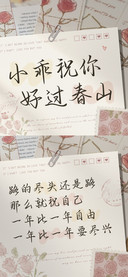 小乖祝你
好过春山
路的尽头还是路
那么就祝自己
一年比一年自由
一年比一年要尽兴